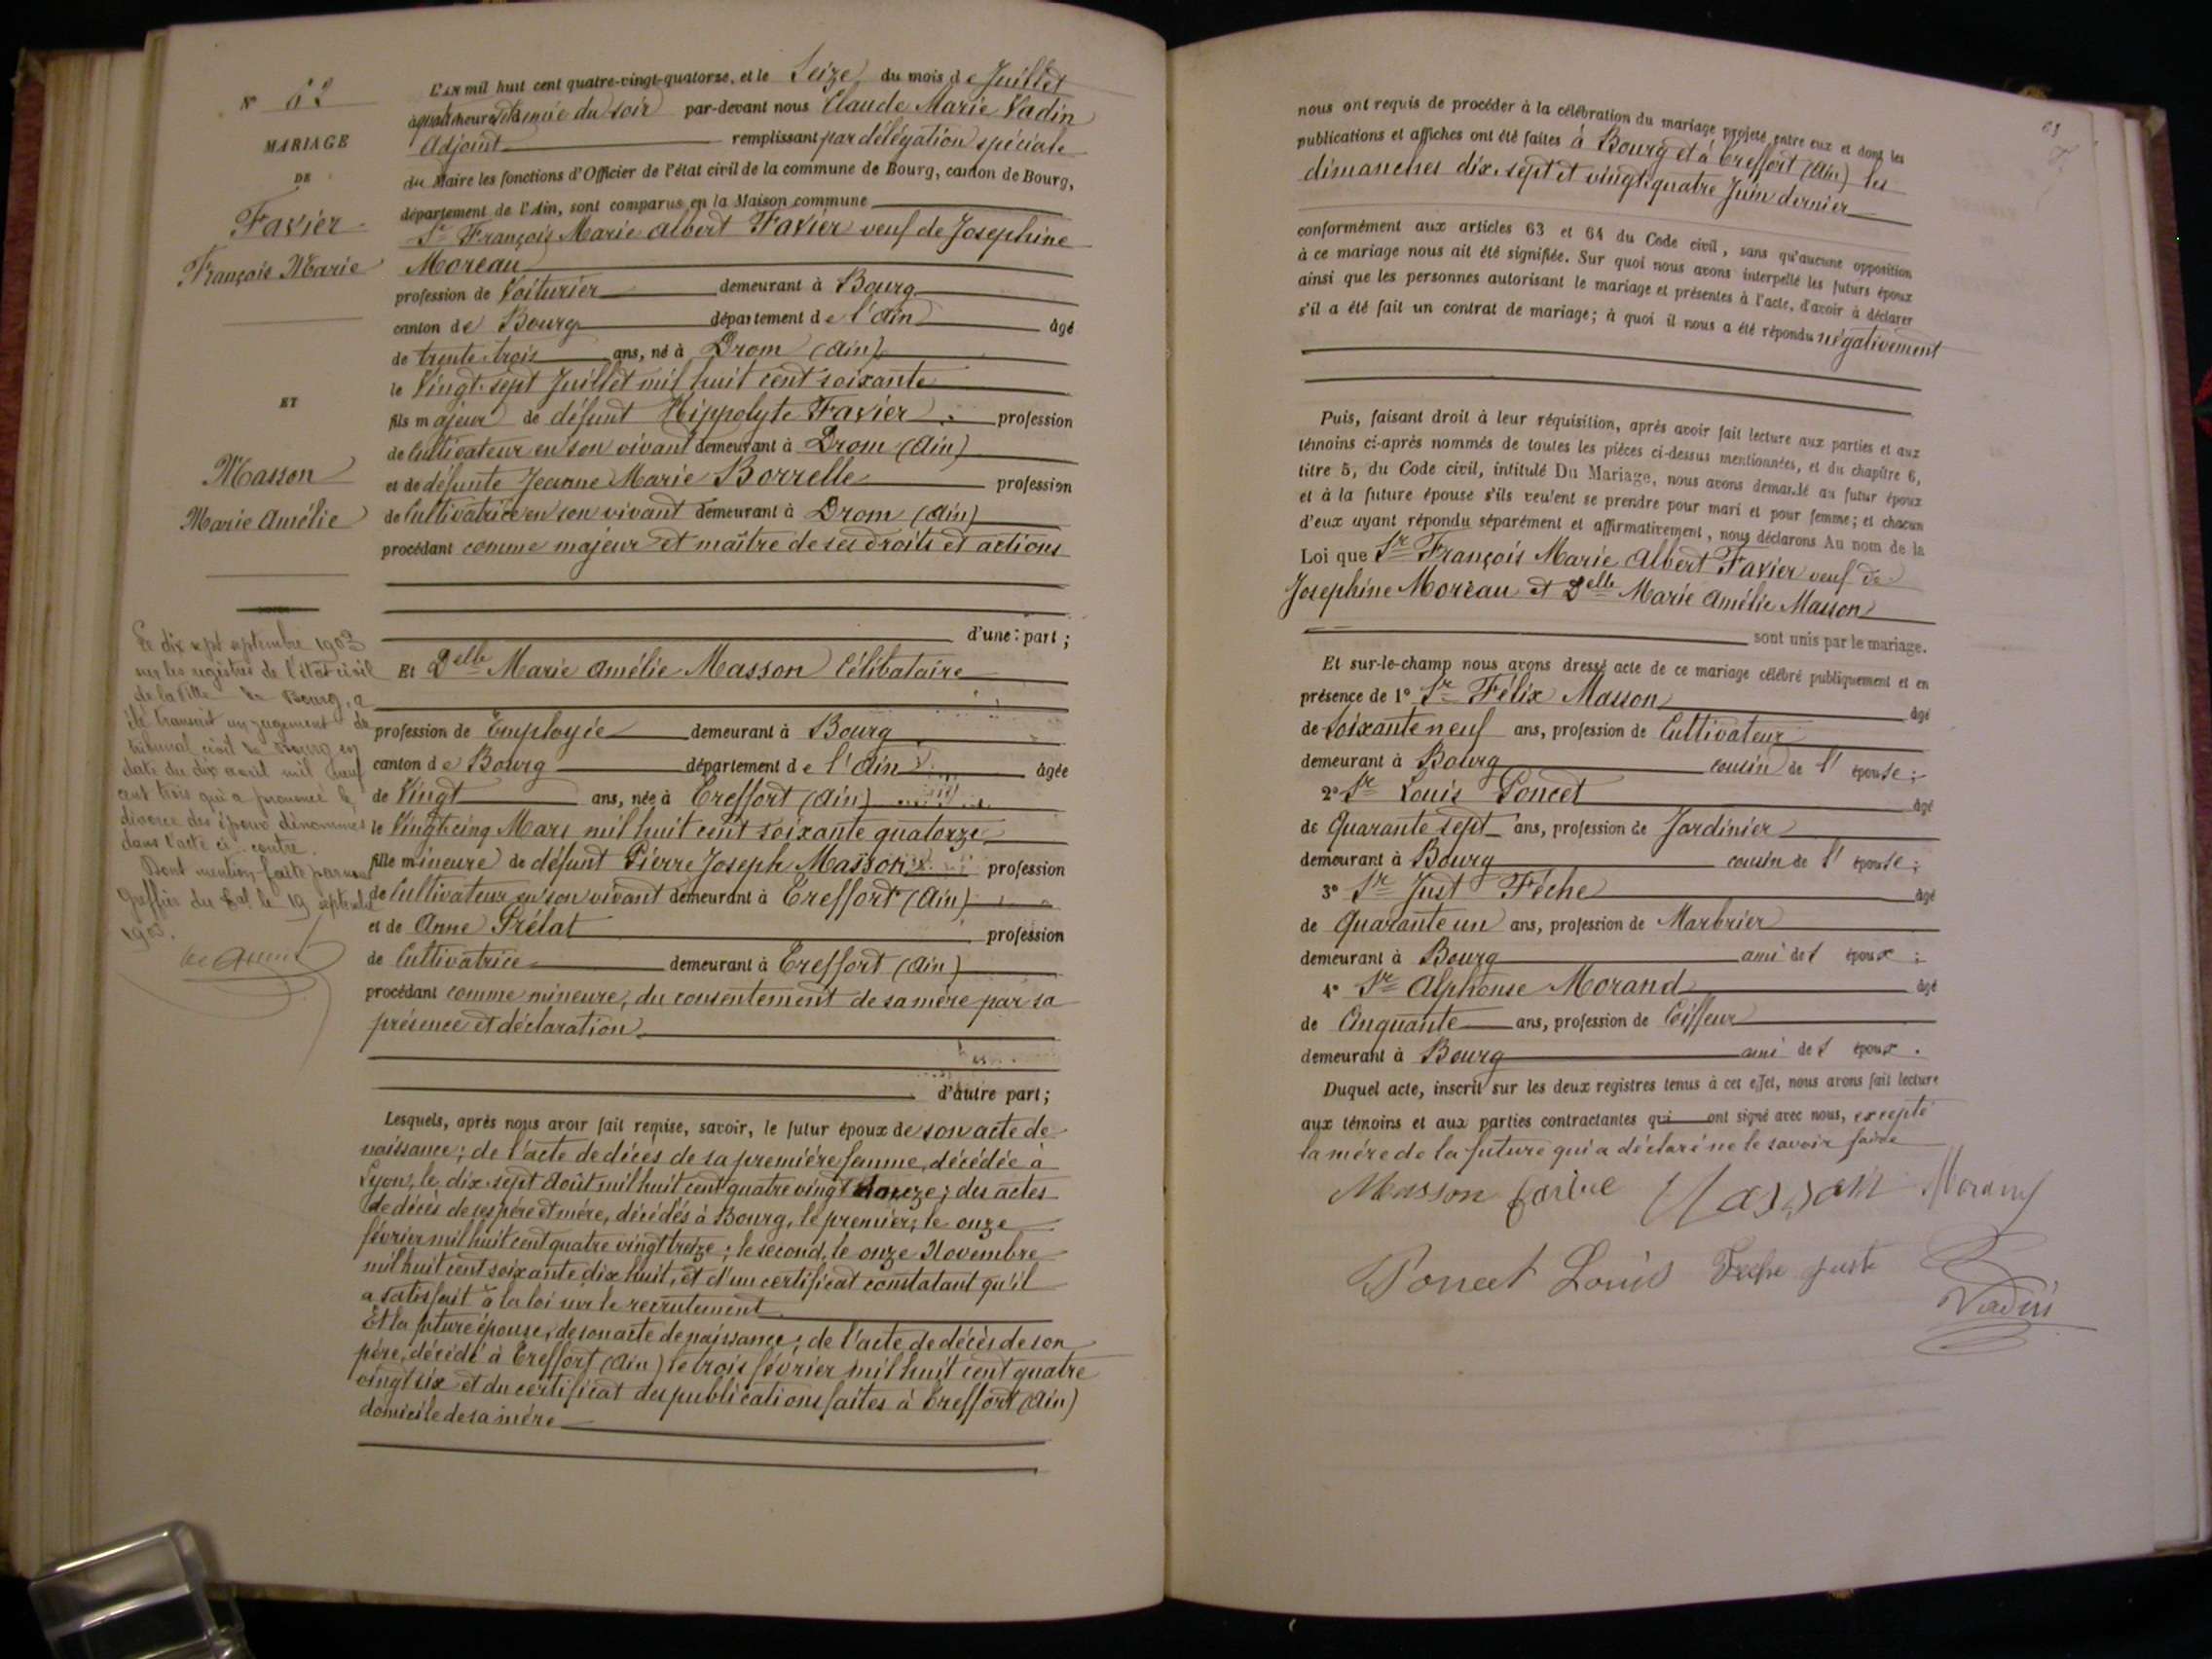 N° 68
MARIAGE
DE
Favier
François Marie
ET
Masson
Marie Amélie
Le dix sept septembre 1903
sur les registres de l'état civil
de la Ville de Bourg, a
été transcrit un jugement du
tribunal civil de Bourg en
date du dix avril mil neuf
cent trois qui a prononcé le
divorce des époux dénommés
dans l'acte ci-contre.
Dont mention faite par nous
Greffier du Bal le 19 septembre
1903.
L'an mil huit cent quatre-vingt-quatorze, et le Seize du mois de Juillet
à quatre heures et demie du soir par-devant nous Claude Marie Vadin
Adjoint remplissant par délégation spéciale
du Maire les fonctions d'Officier de l'état civil de la commune de Bourg, canton de Bourg,
département de l'Ain, sont comparus en la Maison commune
Sr François Marie Albert Favier veuf de Josephine
Moreau
profession de Voiturier demeurant à Bourg
canton de Bourg département de l'Ain âgé
de trente trois ans, né à Drom (Ain)
le Vingt-sept Juillet mil huit cent soixante
fils majeur de défunt Hippolyte Favier profession
de Cultivateur en son vivant demeurant à Drom (Ain)
et de défunte Jeanne Marie Borrelle profession
de Cultivatrice en son vivant demeurant à Drom (Ain)
procédant comme majeur et maître de ses droits et actions
d'une part;
Et Delle Marie Amélie Masson Célibataire
profession de Employée demeurant à Bourg
canton de Bourg département de l'Ain âgée
de Vingt ans, née à Treffort (Ain)
le Vingt-cinq Mars mil huit cent soixante quatorze
fille mineure de défunt Pierre Joseph Masson profession
de Cultivateur en son vivant demeurant à Treffort (Ain)
et de Anne Prélat profession
de Cultivatrice demeurant à Treffort (Ain)
procédant comme mineure, du consentement de sa mère par sa
présence et déclaration
d'autre part;
Lesquels, après nous avoir fait remise, savoir, le futur époux de son acte de
naissance; de l'acte de décès de sa première femme, décédée à
Lyon, le dix-sept Août mil huit cent quatre vingt ; des actes
de décès de ses père et mère, décédés à Bourg, le premier, le onze
février mil huit cent quatre vingt treize; le second, le onze Novembre
mil huit cent soixante dix huit, et d'un certificat constatant qu'il
a satisfait à la loi sur le recrutement
Et la future épouse, de son acte de naissance; de l'acte de décès de son
père, décédé à Treffort (Ain) le trois février mil huit cent quatre
vingt six et du certificat des publications faites à Treffort (Ain)
domicile de sa mère
nous ont requis de procéder à la célébration du mariage projeté entre eux et dont les
publications et affiches ont été faites à Bourg et à Treffort (Ain) les
dimanches dix-sept et vingt-quatre Juin dernier
conformément aux articles 63 et 64 du Code civil, sans qu'aucune opposition
à ce mariage nous ait été signifiée. Sur quoi nous avons interpellé les futurs époux
ainsi que les personnes autorisant le mariage et présentes à l'acte, d'avoir à déclarer
s'il a été fait un contrat de mariage; à quoi il nous a été répondu négativement
Puis, faisant droit à leur réquisition, après avoir fait lecture aux parties et aux
témoins ci-après nommés de toutes les pièces ci-dessus mentionnées, et du chapitre 6,
titre 5, du Code civil, intitulé Du Mariage, nous avons demandé au futur époux
et à la future épouse s'ils veulent se prendre pour mari et pour femme; et chacun
d'eux ayant répondu séparément et affirmativement, nous déclarons Au nom de la
Loi que Sr François Marie Albert Favier veuf de
Josephine Moreau et Delle Marie Amélie Masson
sont unis par le mariage.
Et sur-le-champ nous avons dressé acte de ce mariage célébré publiquement et en
présence de 1° Sr Félix Masson âgé
de Soixante neuf ans, profession de Cultivateur
demeurant à Bourg cousin de l' épouse;
2° Sr Louis Poncet âgé
de Quarante sept ans, profession de Jardinier
demeurant à Bourg cousin de l' épouse;
3° Sr Just Féche âgé
de Quarante un ans, profession de Marbrier
demeurant à Bourg ami de l époux;
4° Sr Alphonse Morand âgé
de Cinquante ans, profession de Coiffeur
demeurant à Bourg ami de l époux.
Duquel acte, inscrit sur les deux registres tenus à cet effet, nous avons fait lecture
aux témoins et aux parties contractantes qui ont signé avec nous, excepté
la mère de la future qui a déclaré ne le savoir faire
Masson Favier Masson Morand
Poncet Louis Feche juste
Vadin